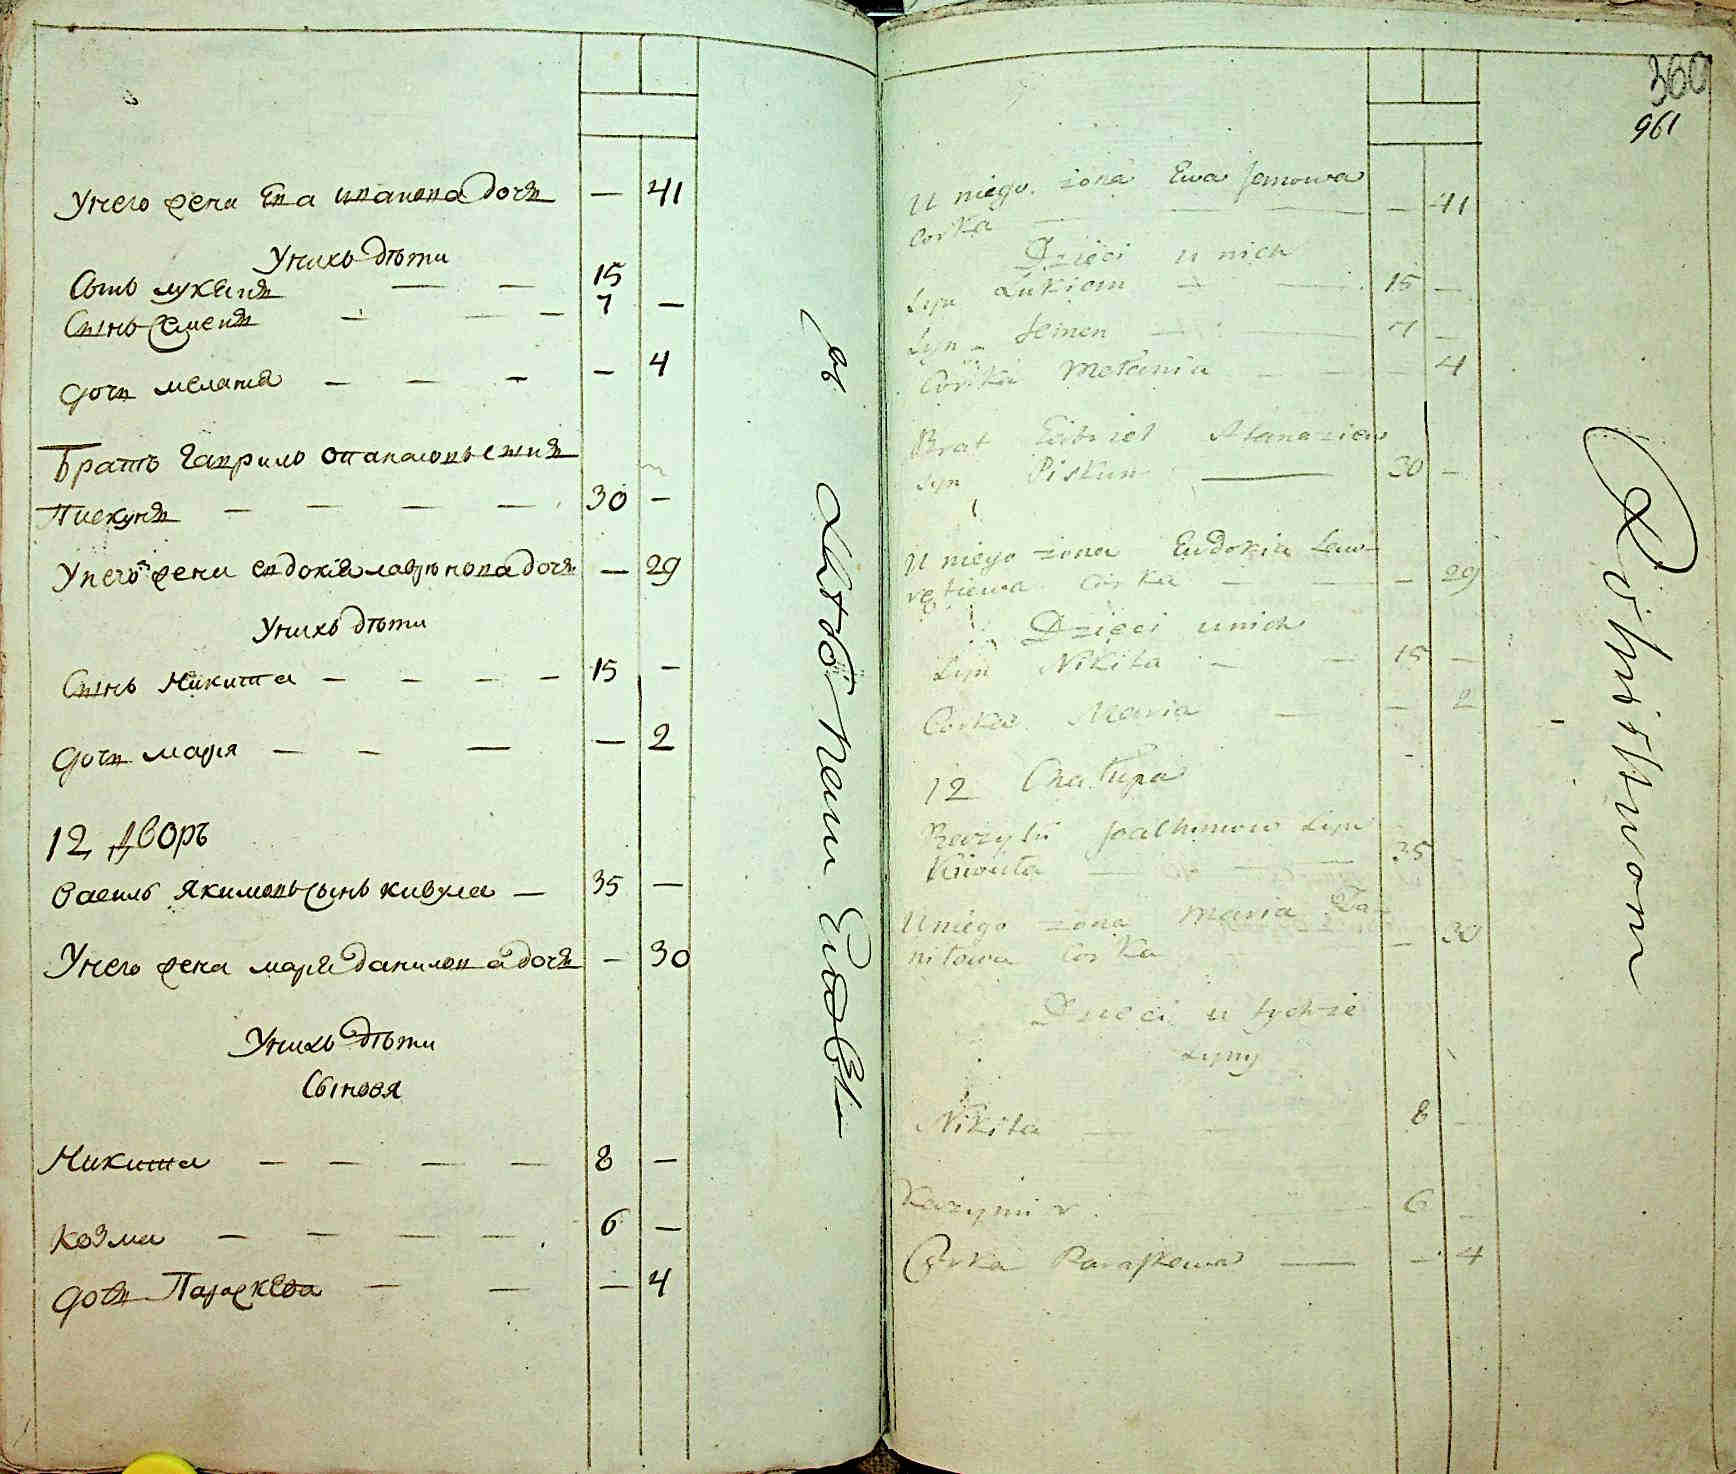 У него жена Ева иванова дочь — 41
У нихъ дѣти
Сынъ лукьянъ — — 15
Сынъ Семенъ — — — 7 —
дочь мелания — — — — 4
Братъ Гаврило
Пискунъ — — — — 30 —
У него жена евдокия дочь — 29
У нихъ дѣти
Сынъ Никита — — — — 15 —
дочь маря — — — — 2
12 дворъ
Василь Якимовъ сынъ кивула — 35 —
У него жена маря данилова дочь — 30
У нихъ дѣти
Сыновя
Никита — — — — 8 —
козма — — — — 6 —
дочь Параскева — — — 4
360
961
U niego żona Ewa Janowa
Corka — — — 41
Dzięci u nich
Syn Łukian — — 15 —
Syn Semen — — 7 —
Corka Mełania — — — 4
Brat Gabriel Atanaziew
syn Piskun — 30 —
U niego żona Eudokia Law-
Corka — — — 29
Dzięci u nich
Syn Nikita — — 15 —
Corka Maria — — 2
12 Chałupa
Bazyli Joachimow Syn
35
U niego żona Maria Da-
niłowa Corka — 30
Dzieci u tychże
Syny
Nikita — — 8 —
Kazymir — — 6 —
Corka Paraskewa — — 4